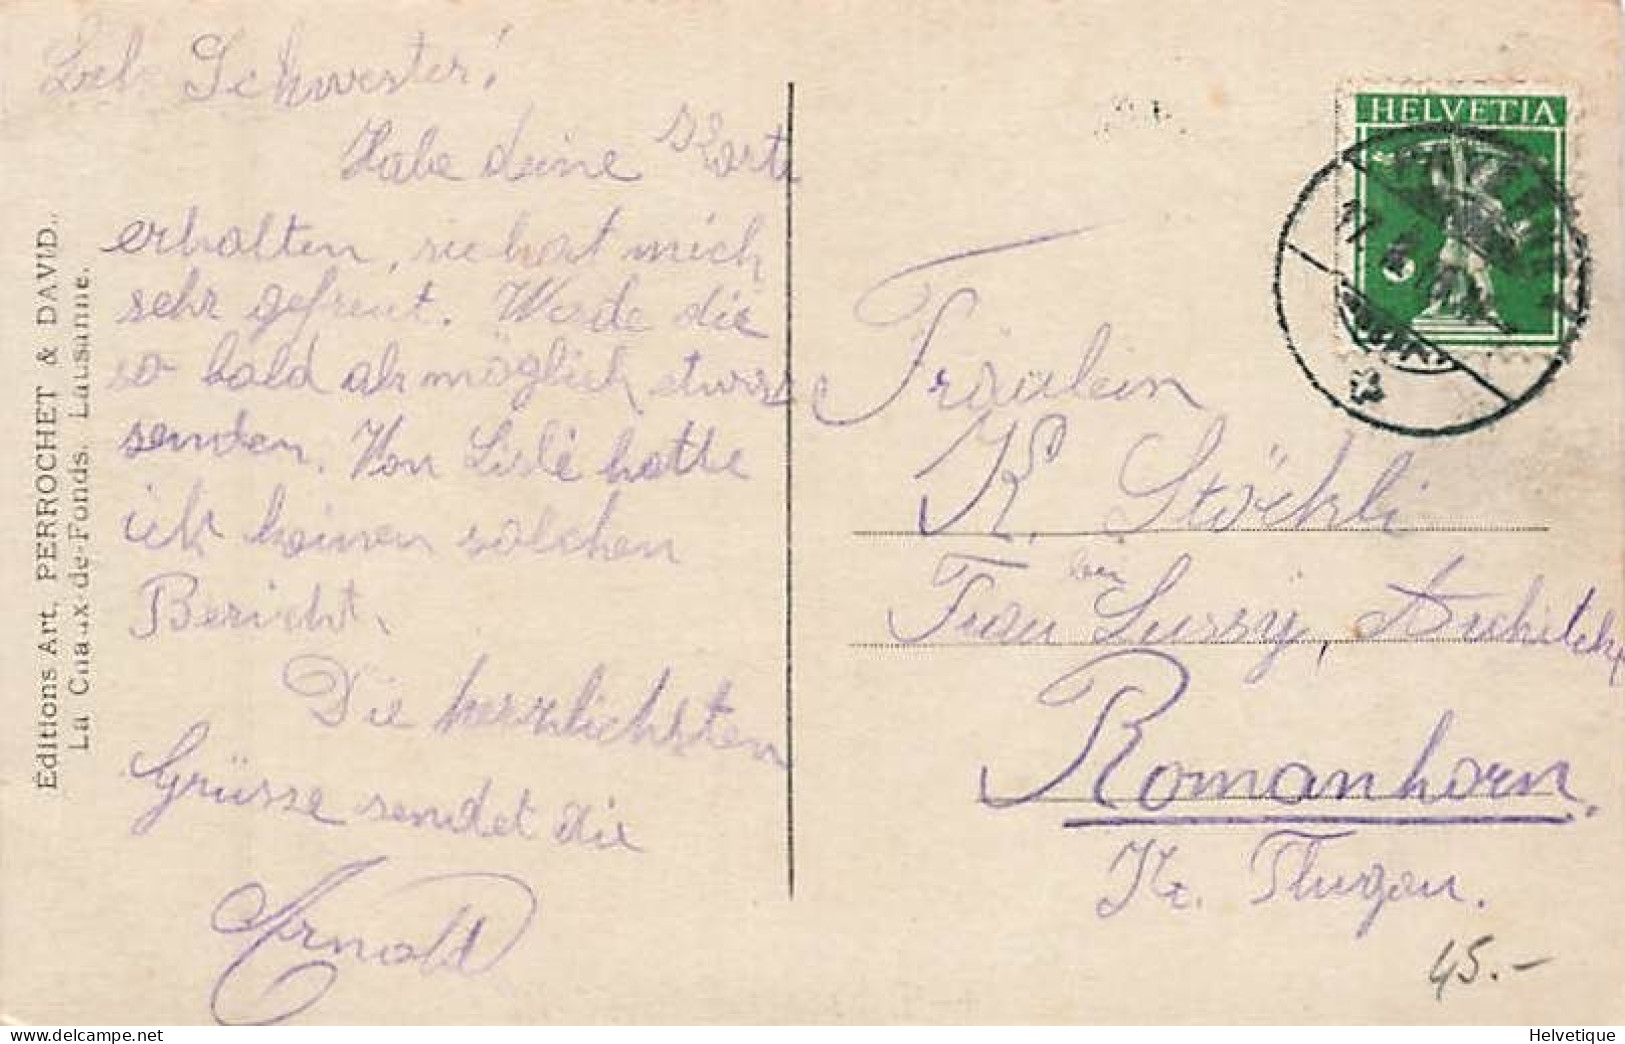 Lieb. Schwester!
Habe deine Karte
erhalten, sie hat mich
sehr gefreut. Werde die
so bald als möglich etwas
senden. Von Lislé hatte
ich keinen solchen
Bericht.
Die herzlichsten
Grüsse sendet die
Arnold
Éditions Art. PERROCHET & DAVID.,
La Chaux-de-Fonds, Lausanne.
HELVETIA
Fräulein
K. Stöckli
bei
Frau Lussy, Architekt
Romanhorn.
Kt. Thurgau.
45.-
Helvetique